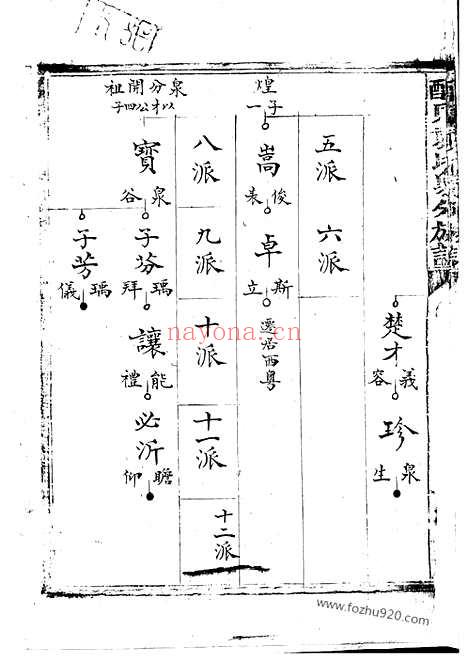 楚才
義容
珍
泉生
五派
六派
煌
子一
嵩
俊表
卓
斯立
遷居西粵
八派
九派
十派
十一派
十二派
泉分開祖
以才公四子
寶
泉谷
子芬
瑀拜
讓
能禮
必沂
瞻仰
子芳
瑀儀
nayona.cn
www.fozhu920.com